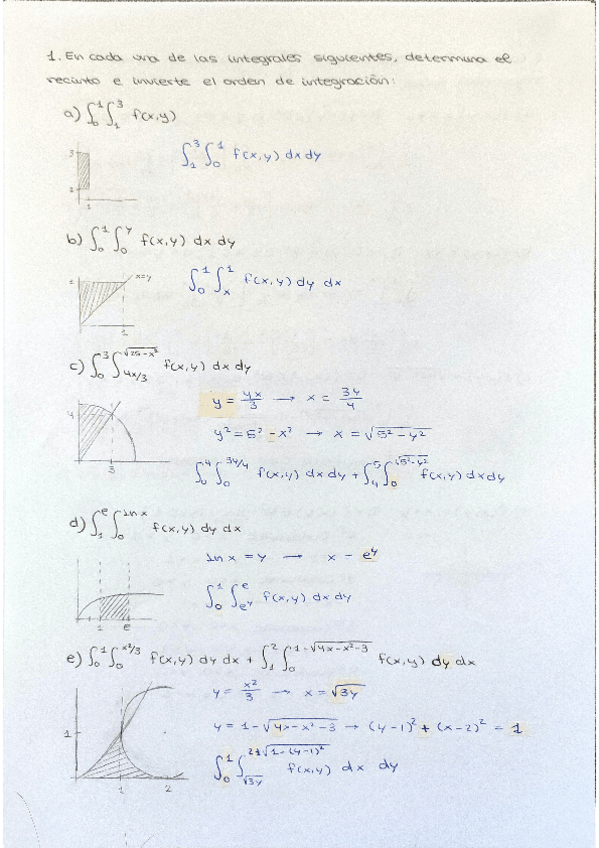 1. En cada una de las integrales siguientes, determina el
recinto e invierte el orden de integración:
a) ∫₀¹∫₁³ f(x,y)
3
1
1
∫₁³∫₀¹ f(x,y) dx dy
b) ∫₀¹∫₀^y f(x,y) dx dy
x=y
1
1
∫₀¹∫ₓ¹ f(x,y) dy dx
c) ∫₀³∫_{4x/3}^{√(25-x²)} f(x,y) dx dy
y = 4x/3 → x = 3y/4
4
y² = 5² - x² → x = √(5² - y²)
3
∫₀⁴∫₀^{3y/4} f(x,y) dx dy + ∫₄⁵∫₀^{√(5²-y²)} f(x,y) dx dy
d) ∫₁^e∫₀^{ln x} f(x,y) dy dx
ln x = y → x - e^y
1 e
∫₀¹∫_{e^y}^e f(x,y) dx dy
e) ∫₀¹∫₀^{x²/3} f(x,y) dy dx + ∫₁²∫₀^{1-√(4x-x²-3)} f(x,y) dy dx
y = x²/3 → x = √3y
1
y = 1 - √(4x-x²-3) → (y-1)² + (x-2)² = 1
1 2
∫₀¹∫_{√3y}^{2±√(1-(y-1)²)} f(x,y) dx dy